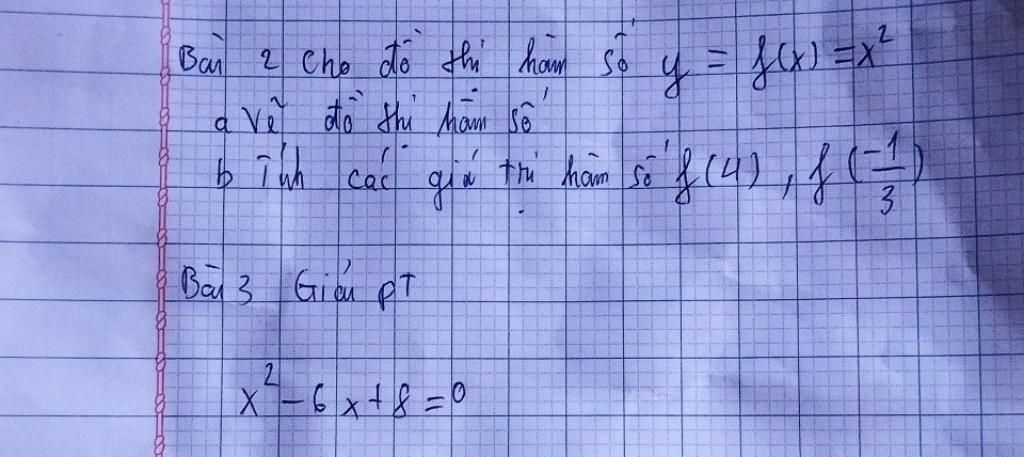 Bài 2 Cho đồ thị hàm số y = f(x) = x²
a Vẽ đồ thị hàm số
b Tính các giá trị hàm số f(4), f(-1/3)
Bài 3 Giải PT
x² - 6x + 8 = 0